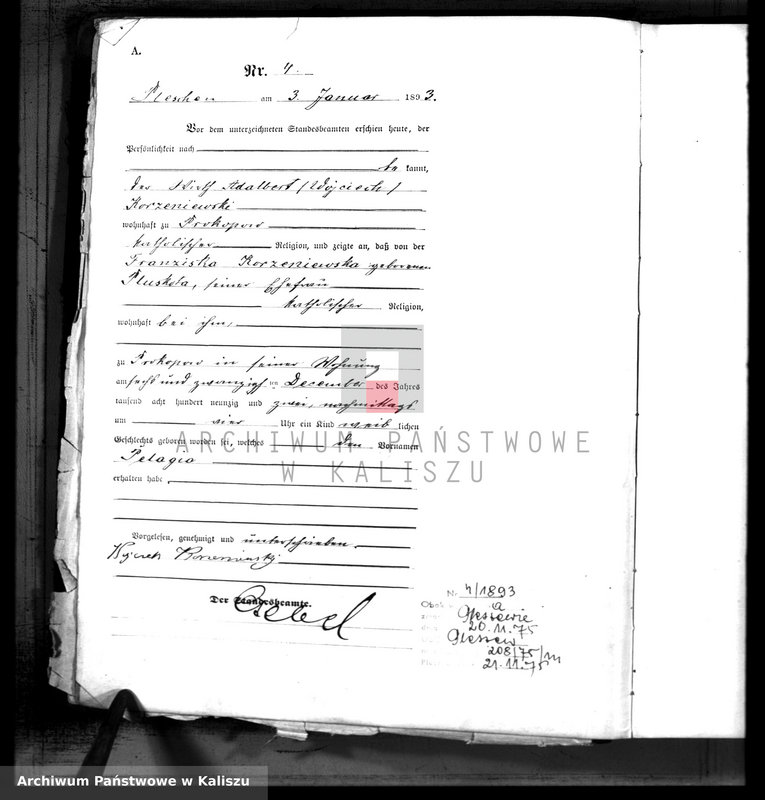 A.
Nr. 4.
Pleschen am 3. Januar 1893.
Vor dem unterzeichneten Standesbeamten erschien heute, der
Persönlichkeit nach
be kannt,
der Wirth Adalbert (Wojciech)
Korzeniewski
wohnhaft zu Prokopow
katholischer Religion, und zeigte an, daß von der
Franziska Korzeniewska geborenen
Pluskota, seiner Ehefrau
katholischer Religion,
wohnhaft bei ihm,
zu Prokopow in seiner Wohnung
am sechs und zwanzigsten December des Jahres
tausend acht hundert neunzig und zwei, nachmittags
um vier Uhr ein Kind weib lichen
Geschlechts geboren worden sei, welches den Vornamen
Pelagia
erhalten habe
Vorgelesen, genehmigt und unterschrieben.
Korzeniewski
Der Standesbeamte.
ARCHIWUM PAŃSTWOWE
W KALISZU
Nr 4/1893
20.11.75
208/75/m
21.11.75
Archiwum Państwowe w Kaliszu